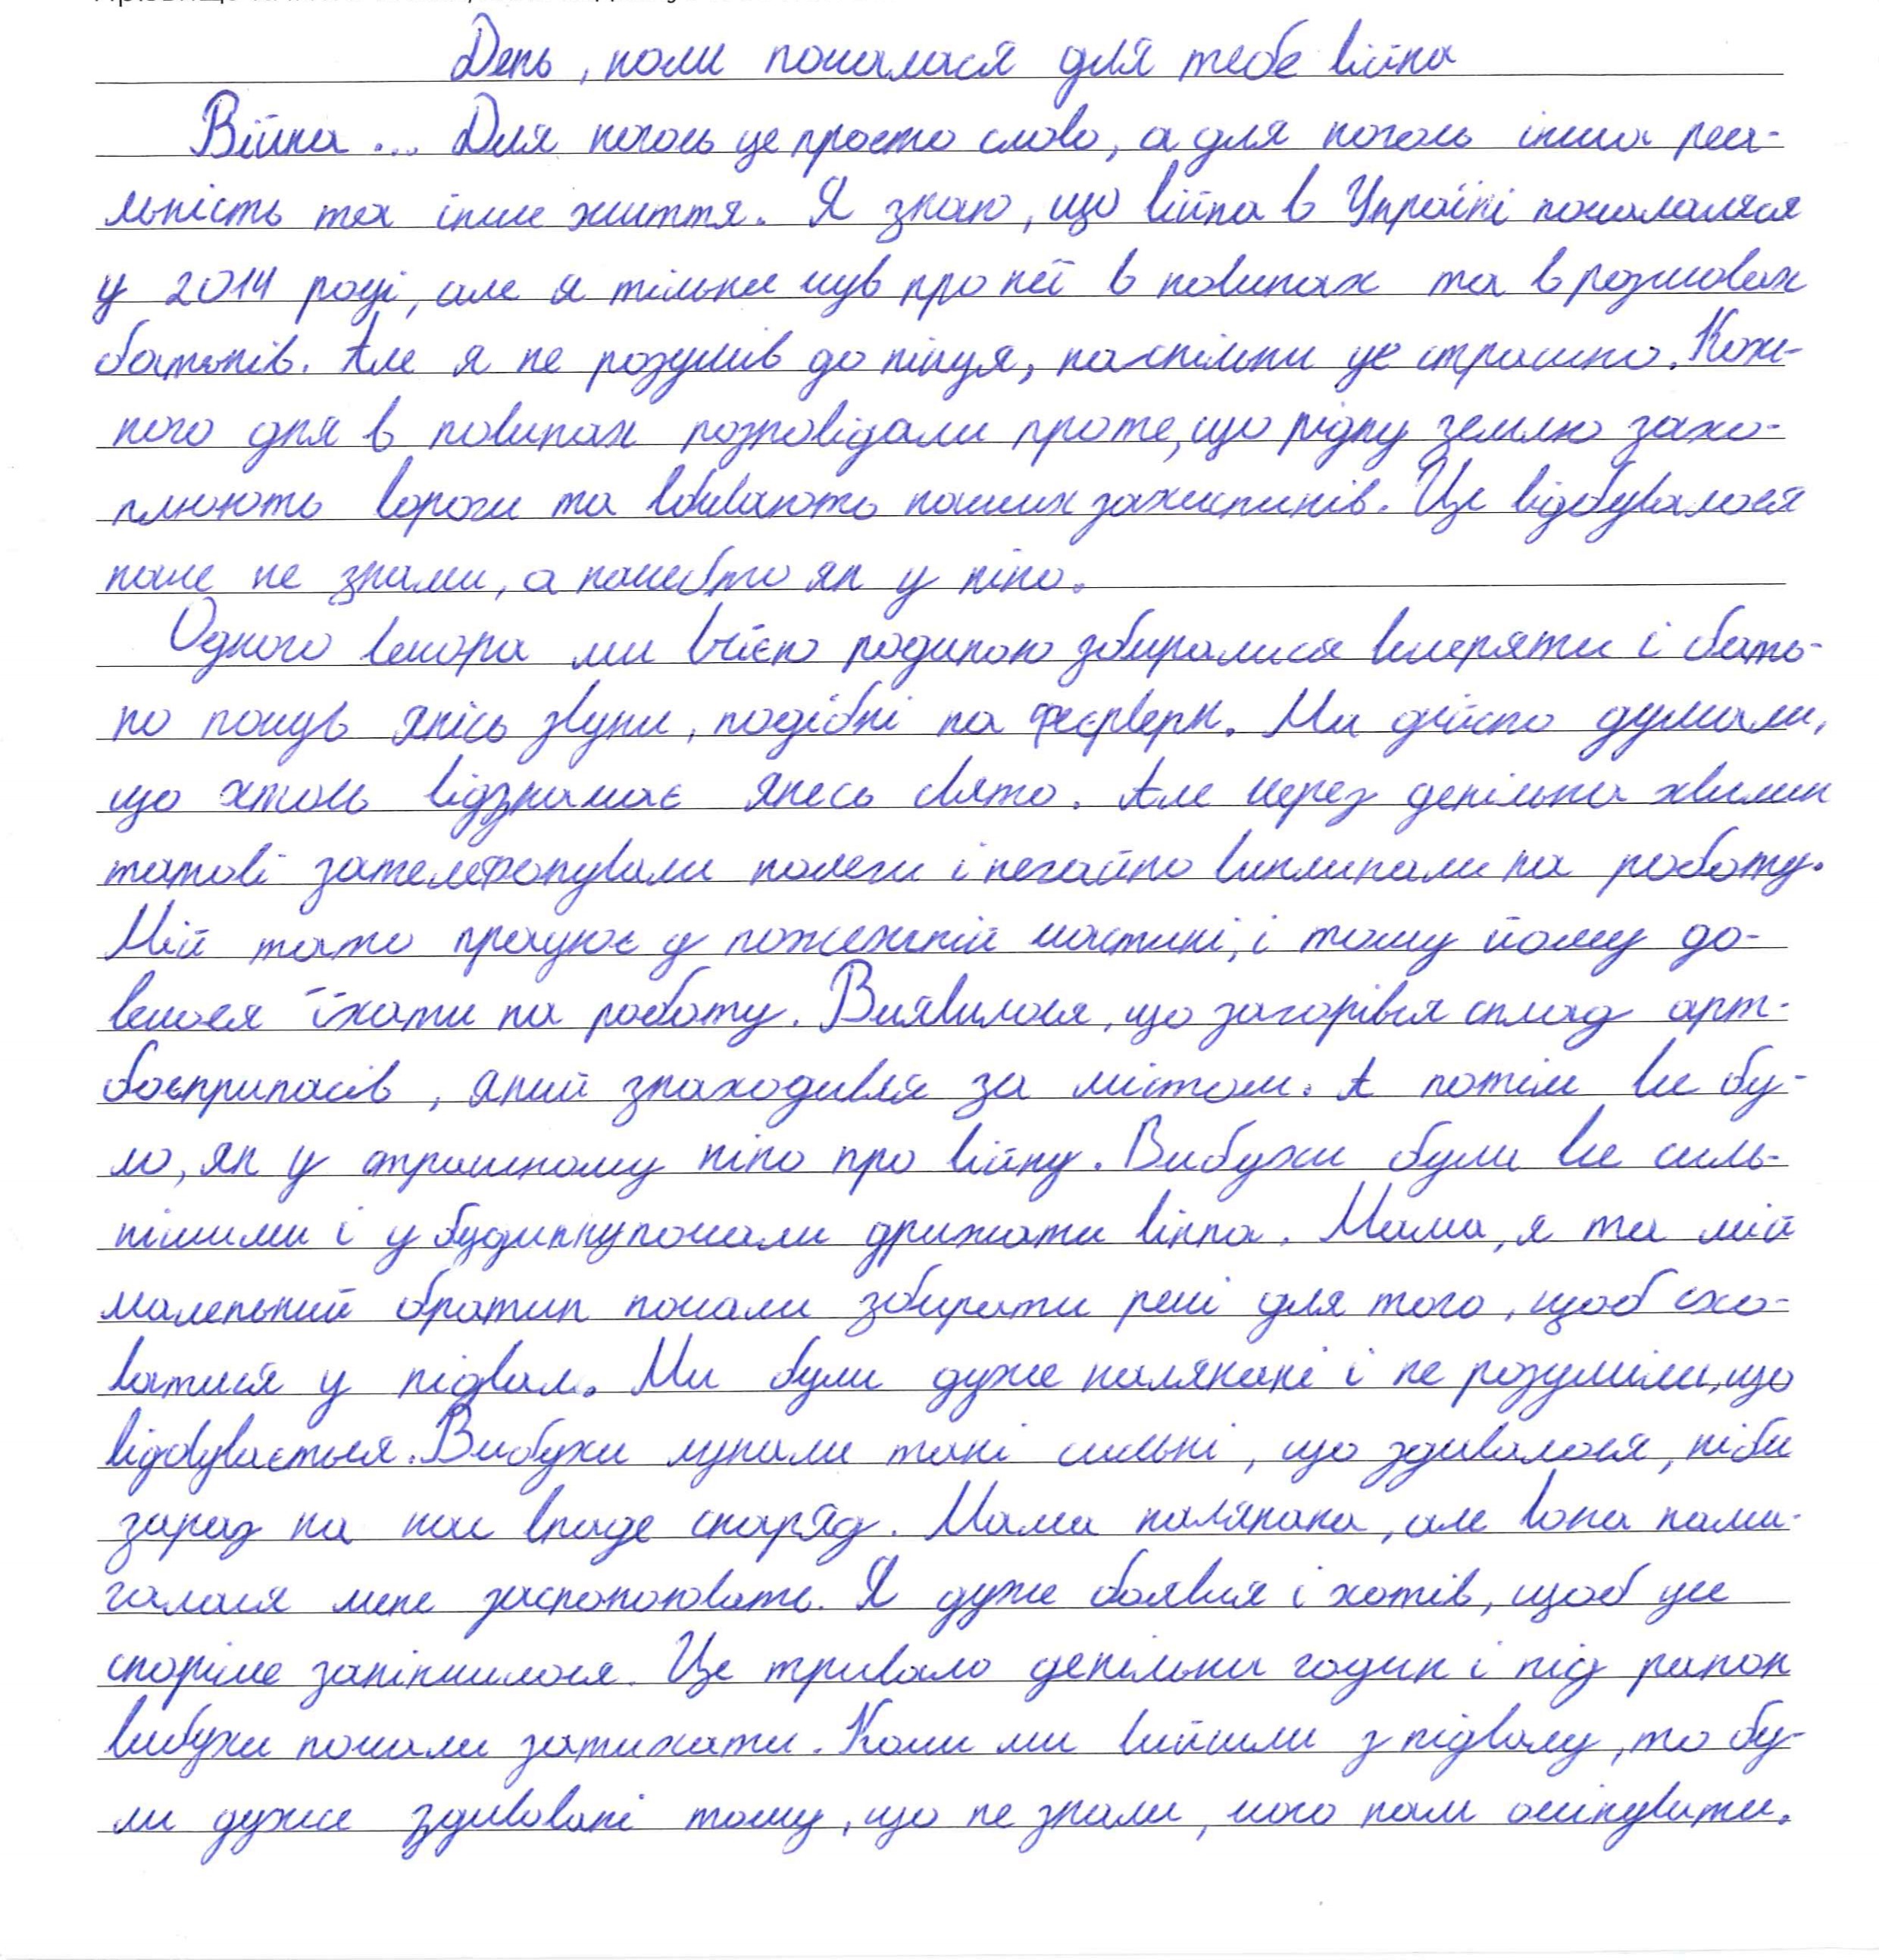 День, коли почалася для тебе війна
Війна... Для когось це просто слово, а для когось інша реа-
льність та інше життя. Я знаю, що війна в Україні почалалася
у 2014 році, але я тільки чув про неї в новинах та в розмовах
батьків. Але я не розумів до кінця, наскільки це страшно. Кож-
ного дня в новинах розповідали проте, що рідну землю захо-
плюють вороги та вбивають наших захисників. Це відбувалося
наче не з нами, а начебто як у кіно.
Одного вечора ми всією родиною збиралися вечеряти і бать-
ко почув якісь звуки, подібні на феєрверк. Ми дійсно думали,
що хтось відзначає якесь свято. Але через декілька хвилин
татові зателефонували колеги і негайно викликали на роботу.
Мій тато працює у пожежній частині, і тому йому до-
велося їхати на роботу. Виявилося, що загорівся склад арт-
боєприпасів, який знаходився за містом. А потім все бу-
ло, як у страшному кіно про війну. Вибухи були все силь-
нішими і у будинку почали дрижати вікна. Мама, я та мій
маленький братик почали збирати речі для того, щоб схо-
ватися у підвал. Ми були дуже налякані і не розуміли, що
відбувається. Вибухи лунали такі сильні, що здавалося, ніби
зараз на нас впаде снаряд. Мама налякана, але вона нама-
галася мене заспокоювати. Я дуже боявся і хотів, щоб це
скоріше закінчилося. Це тривало декілька годин і під ранок
вибухи почали затихати. Коли ми вийшли з підвалу, то бу-
ли дуже здивовані тому, що не знали, чого нам очікувати.